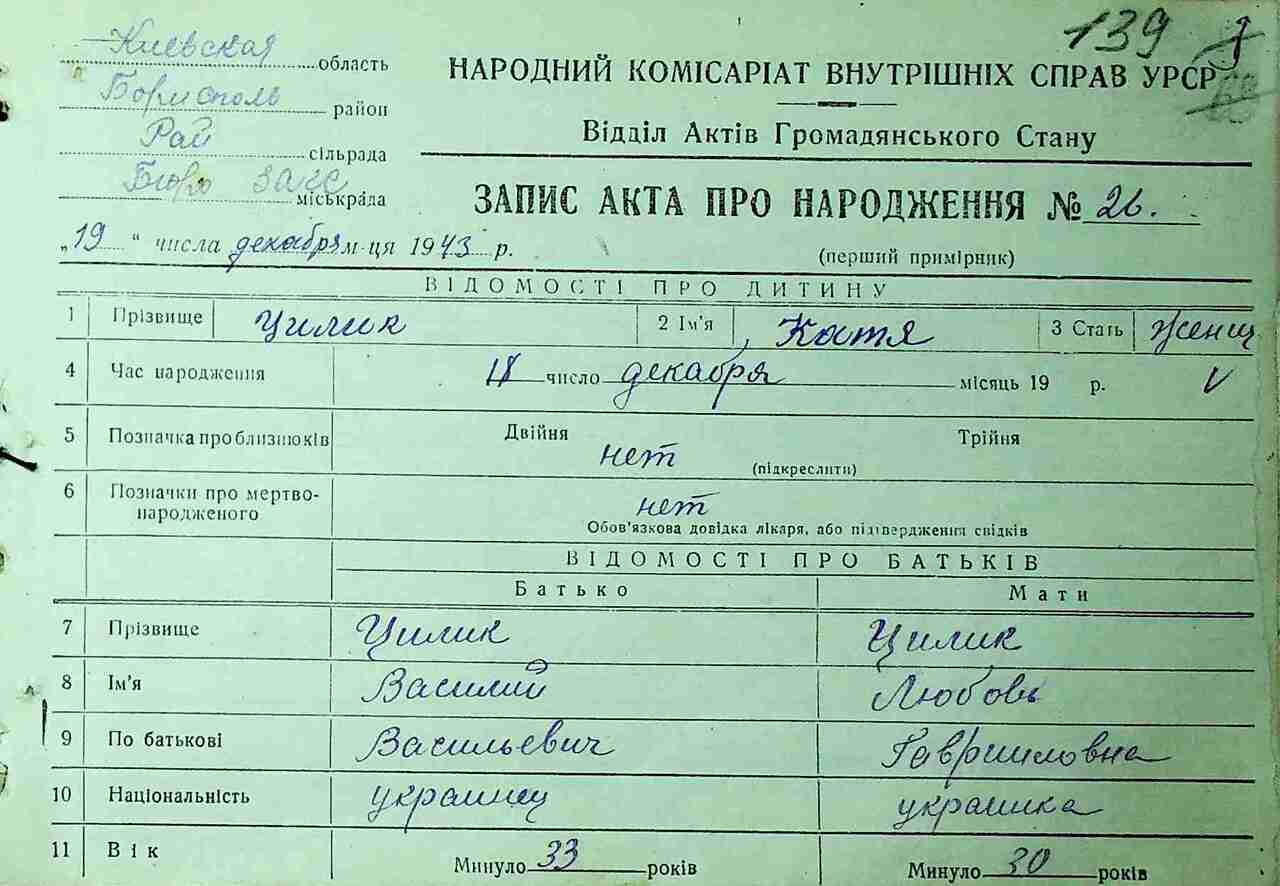 139
Киевская область
Борисполь район
Рай сільрада
Бюро ЗАГС міськрада
НАРОДНИЙ КОМІСАРІАТ ВНУТРІШНІХ СПРАВ УРСР
Відділ Актів Громадянського Стану
ЗАПИС АКТА ПРО НАРОДЖЕННЯ № 26.
„19“ числа декабря м-ця 1943 р.
(перший примірник)
ВІДОМОСТІ ПРО ДИТИНУ
1 Прізвище Цилик 2 Ім'я Катя 3 Стать женщ
4 Час народження 18 число декабря місяць 19 р. V
5 Позначка про близнюків Двійня нет Трійня
(підкреслити)
6 Позначки про мертво-
народженого нет
Обов'язкова довідка лікаря, або підтвердження свідків
ВІДОМОСТІ ПРО БАТЬКІВ
Батько Мати
7 Прізвище Цилик Цилик
8 Ім'я Василий Любовь
9 По батькові Васильевич Гаврииловна
10 Національність украинец украинка
11 Вік Минуло 33 років Минуло 30 років